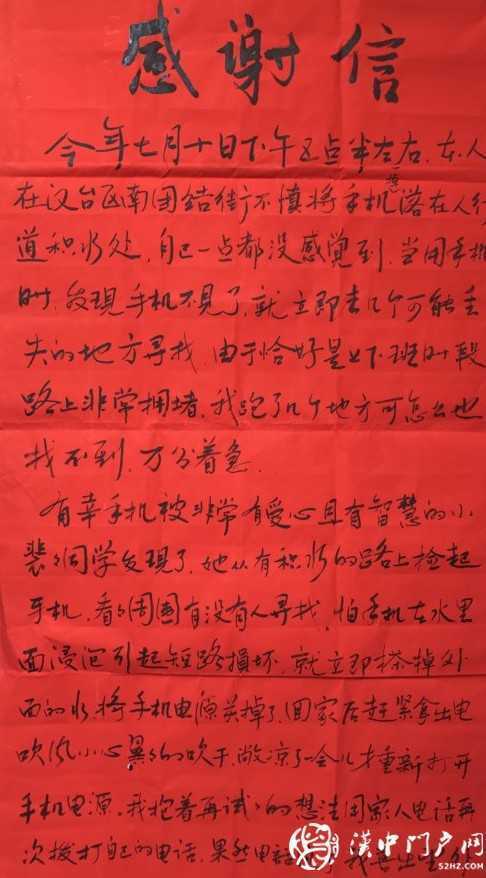 感谢信
今年七月十日下午五点半左右,本人
在汉台区南团结街,不慎将手机落在人行
道积水处,自己一点都没感觉到,当用手机
时,发现手机不见了,就立即去几个可能丢
失的地方寻找,由于恰好是上下班时段
路上非常拥堵,我跑了几个地方可怎么也
找不到,万分着急.
有幸手机被非常有爱心且有智慧的小
裴同学发现了,她从有积水的路上捡起
手机,看看周围有没有人寻找,怕手机在水里
面浸泡引起短路損坏,就立即擦掉外
面的水,将手机电源关掉了,回家后赶紧拿出电
吹风小心翼翼的吹干,敞凉了一会儿才重新打开
手机电源.我抱着再试试的想法用家人电话再
次拨打自己的电话,果然电
漢中门户网
52HZ.COM